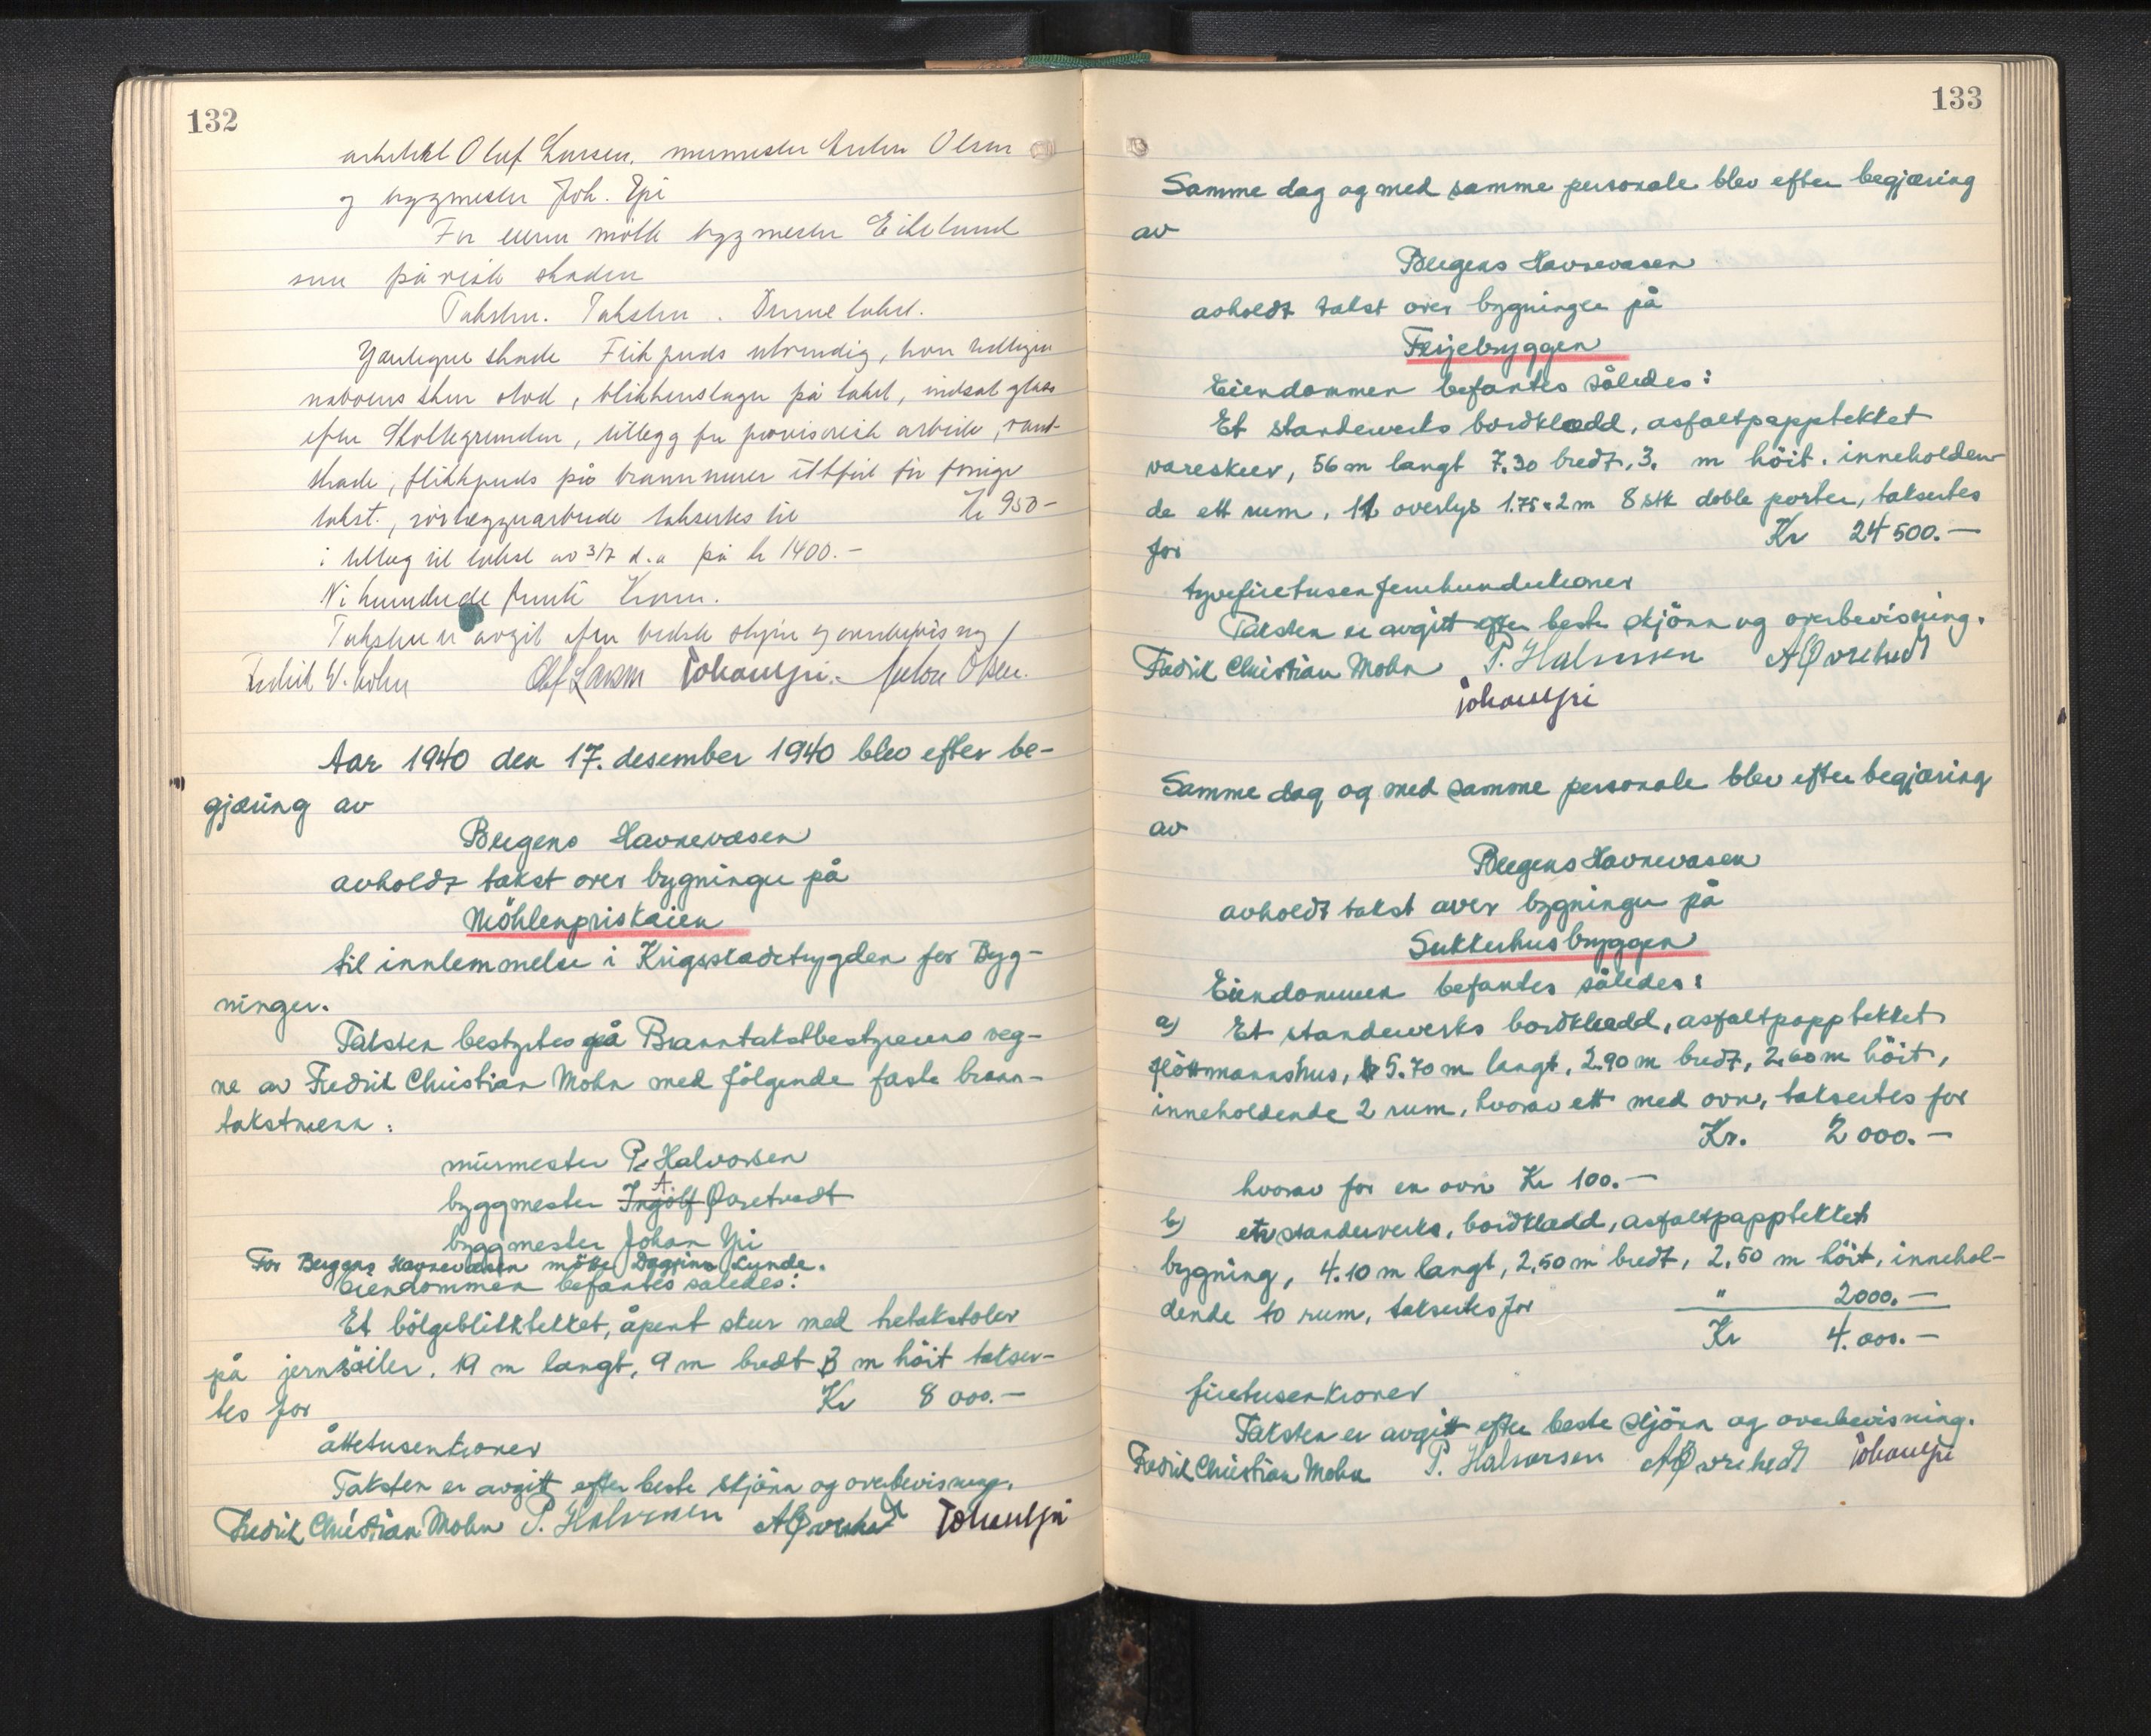 132
arkitekt Oluf Larsen, murmester Anton Olsen
og byggmester Joh. Ypi
For eieren mötte byggmester Eikelund
som påviste skaden
Taksten. Taksten. Denne takst.
Ytterligere skade Flikkpuds utvendig, hvor
naboens skur stod, blikkenslager på taket, indsat glass
efter, tillegg for provisorisk arbeide, vand-
skade, flikkpuds på brannmurer for forrige
takst, rörleggerarbeide taksertes til kr 950-
i tillæg til takst av 3/7 d.a på kr 1400.-
Ni hundrede femti Kroner.
Taksten er avgit efter bedste skjön og overbevisning
Fredrik W. Olaf Larsen Johan Ypi. Anton Olsen.
Aar 1940 den 17. desember 1940 blev efter be-
gjæring av
Bergens Havnevæsen
avholdt takst over bygninger på
Möhlenpriskaien
til innlemmelse i Krigsskadetrygden for Byg-
ninger.
Taksten bestyrtes på Branntakstbestyrerens veg-
ne av Fredrik Christian Mohn med fölgende faste brann-
takstmenn:
murmester P. Halvorsen
byggmester Ingolf A. Øvretvedt
byggmester Johan Ypi
For Bergens Havnevæsen mötte Dagfinn Lynde.
Eiendommen befantes således:
Et bölgeblikktekket, åpent skur med tretakstoler
på jernsöiler, 19 m langt, 9 m bredt 3 m höit takser-
tes for Kr 8 000.-
åttetusenkroner
Taksten er avgitt efter beste skjönn og overbevisning.
Fredrik Christian Mohn P. Halvorsen A Øvretvedt Johan Ypi
133
Samme dag og med samme personale blev efter begjæring
av
Bergens Havnevæsen
avholdt takst over bygninger på
Festjebryggen
Eiendommen befantes således:
Et standewerks bordklædd, asfaltpapptekket
vareskur, 56 m langt 7.30 bredt, 3. m höit. inneholden-
de ett rum, 11 overlys 1.75 x 2 m 8 stk doble porter, taksertes
for Kr 24 500.-
tyvefiretusenfemhundrekroner
Taksten er avgitt efter beste skjönn og overbevisning.
Fredrik Christian Mohn P. Halvorsen A Øvretvedt
Johan Ypi
Samme dag og med samme personale blev efter begjæring
av
Bergens Havnevæsen
avholdt takst over bygninger på
Sukkerhusbryggen
Eiendommen befantes således:
a) Et standewerks bordklædd, asfaltpapptekket
flöttmannshus, 5.70 m langt, 2.90 m bredt, 2.60 m höit,
inneholdende 2 rum, hvorav ett med ovn, taksertes for
Kr. 2 000.-
hvorav for en ovn Kr 100.-
b) et standerverks, bordklædd, asfaltpapptekket
bygning, 4.10 m langt, 2,50 m bredt, 2,50 m höit, innehol-
dende to rum, taksertes for " 2000.-
Kr 4.000.-
firetusenkroner
Taksten er avgitt efter beste skjönn og overbevisning.
Fredrik Christian Mohn P. Halvorsen A Øvretvedt Johan Ypi